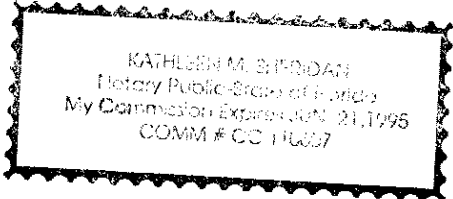 KATHLEEN M. SHERIDAN
Notary Public-State of Florida
My Commission Expires JUN. 21,1995
COMM # CC